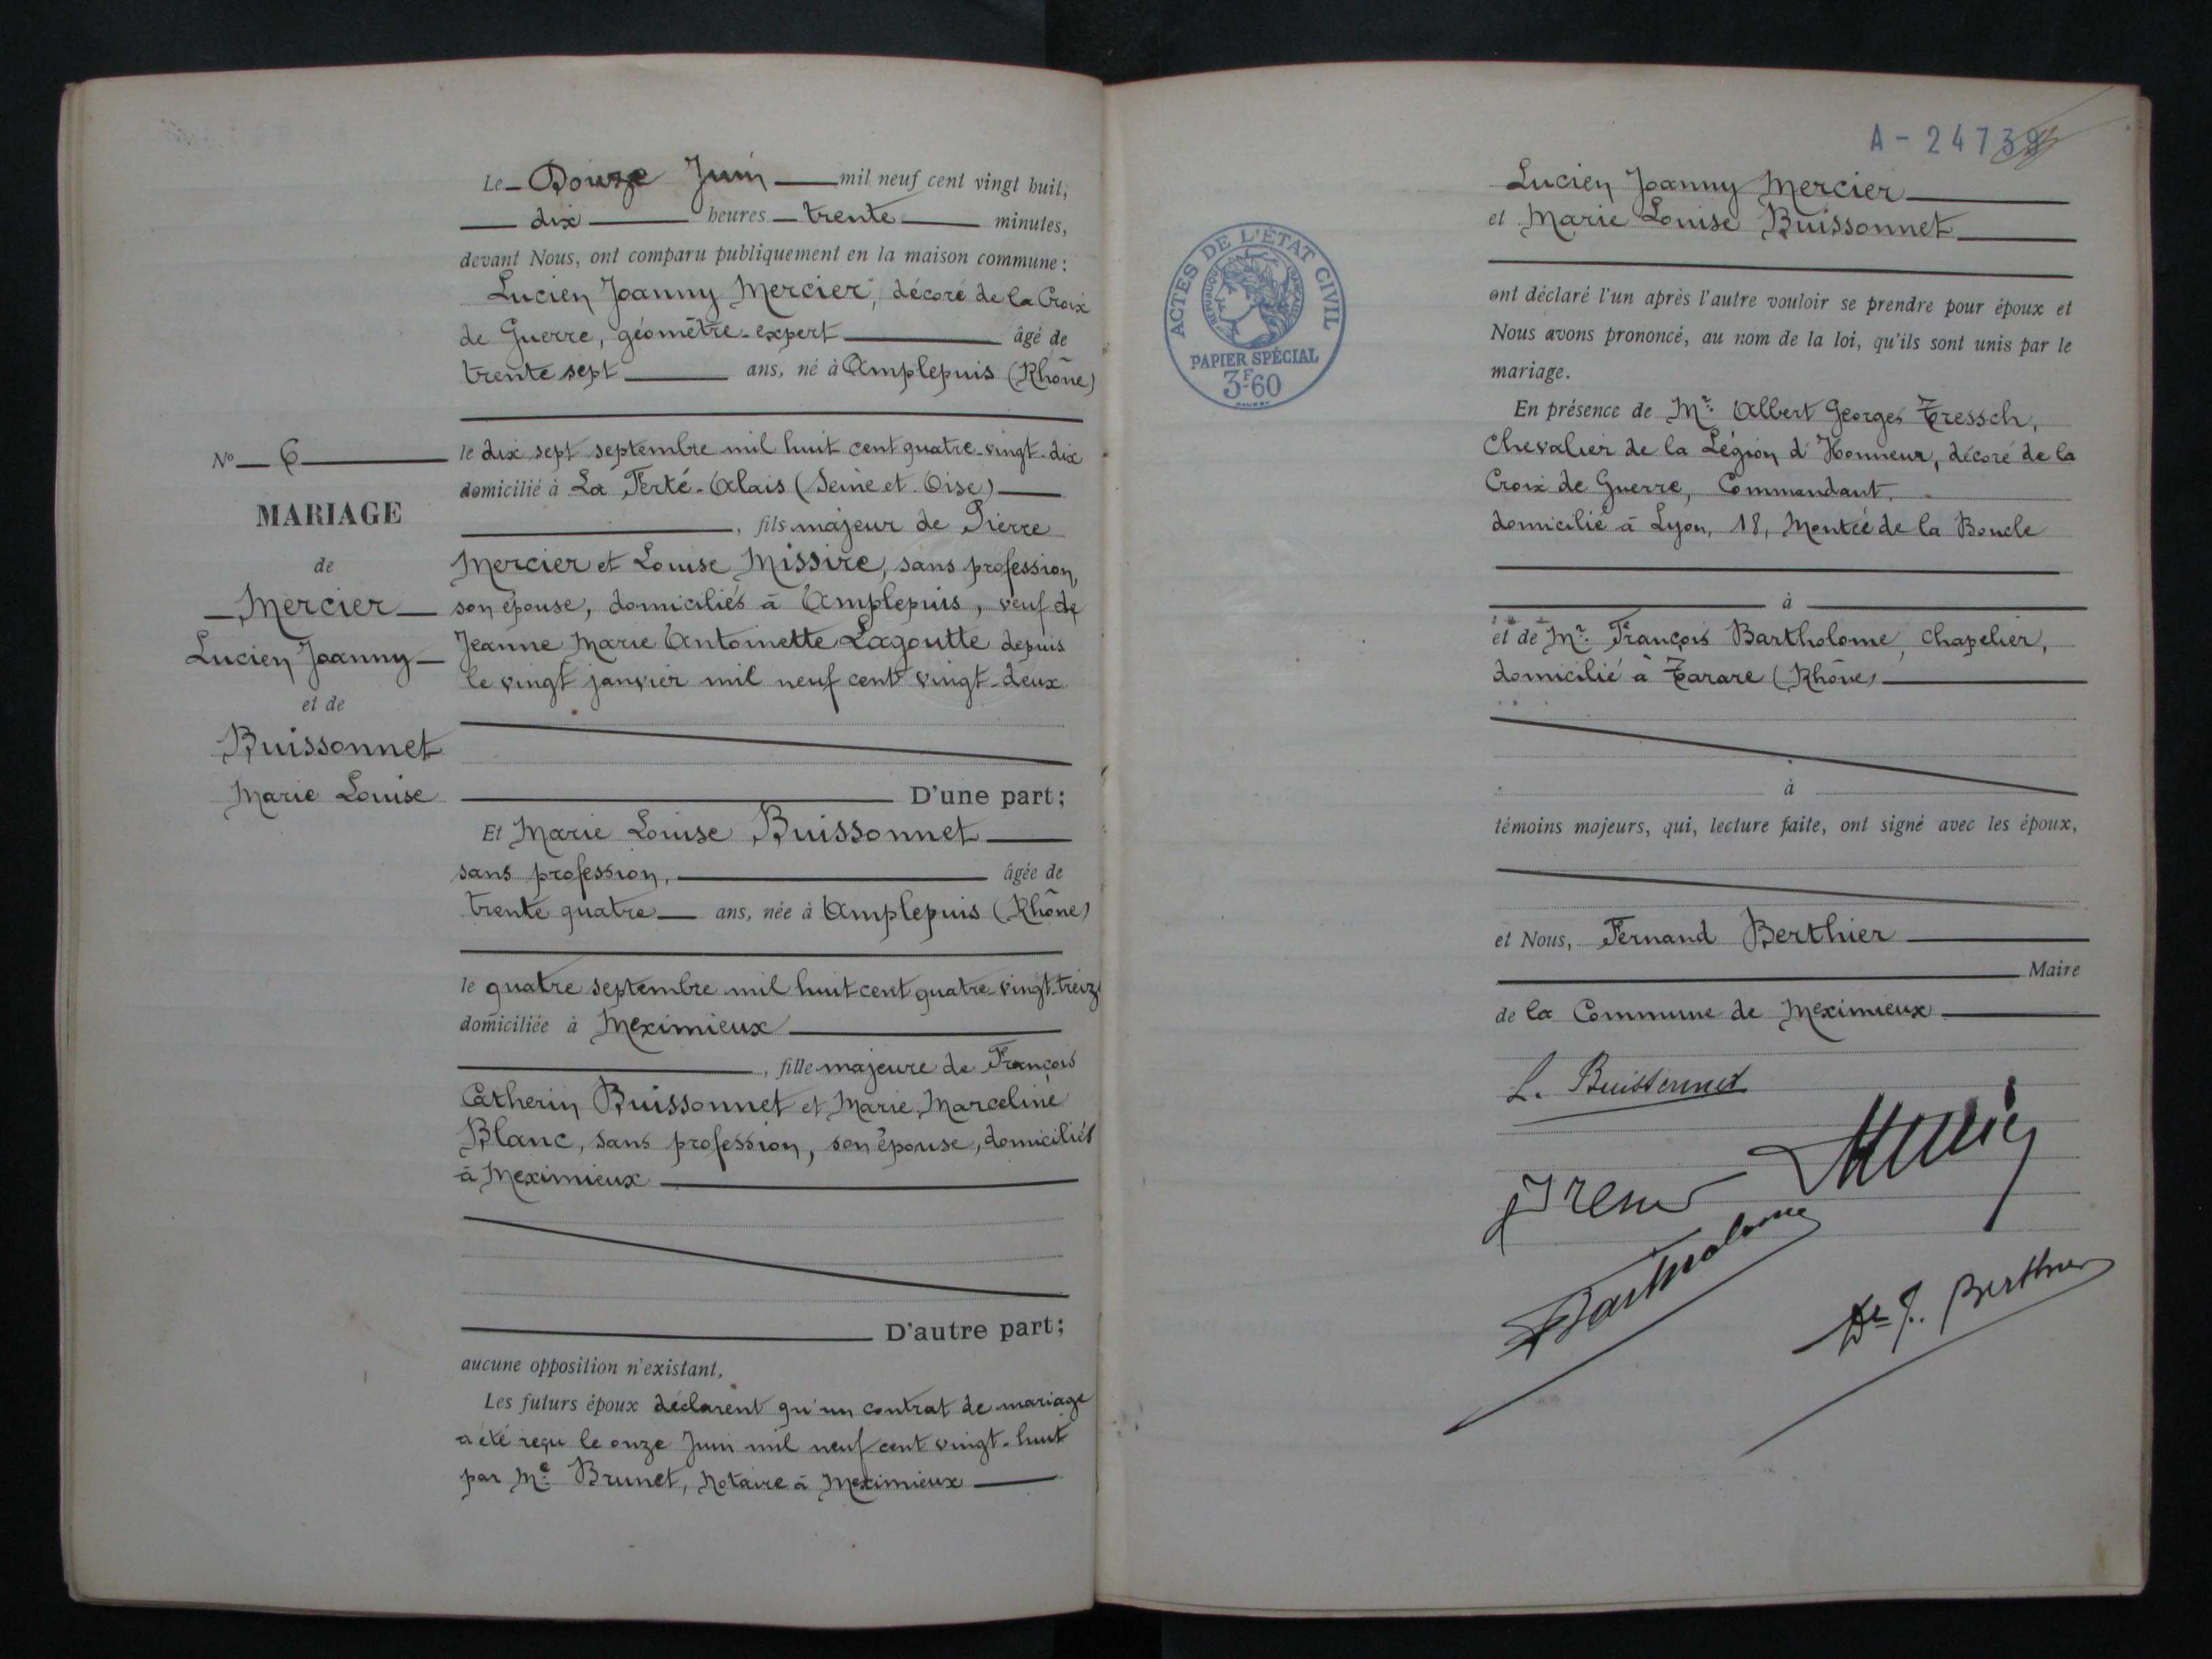 Le Douze Juin mil neuf cent vingt huit,
dix heures trente minutes,
devant Nous, ont comparu publiquement en la maison commune :
Lucien Joanny Mercier, décoré de la Croix
de Guerre, géomètre-expert âgé de
trente sept ans, né à Amplepuis (Rhône)
le dix sept septembre mil huit cent quatre-vingt-dix
domicilié à La Ferté-Alais (Seine et Oise)
, fils majeur de Pierre
Mercier et Louise Missire, sans profession,
son épouse, domiciliés à Amplepuis, veuf de
Jeanne Marie Antoinette Lagoutte depuis
le vingt janvier mil neuf cent vingt-deux
D'une part ;
Et Marie Louise Buissonnet
sans profession, âgée de
trente quatre ans, née à Amplepuis (Rhône)
le quatre septembre mil huit cent quatre-vingt-treize
domiciliée à Meximieux
, fille majeure de François
Catherin Buissonnet et Marie Marceline
Blanc, sans profession, son épouse, domiciliés
à Meximieux
D'autre part ;
aucune opposition n'existant,
Les futurs époux déclarent qu'un contrat de mariage
a été reçu le onze Juin mil neuf cent vingt-huit
par Me Brunet, Notaire à Meximieux
No 6
MARIAGE
de
Mercier
Lucien Joanny
et de
Buissonnet
Marie Louise
ACTES DE L'ÉTAT CIVIL
RÉPUBLIQUE FRANÇAISE
PAPIER SPÉCIAL
3F60
A - 24739
Lucien Joanny Mercier
et Marie Louise Buissonnet
ont déclaré l'un après l'autre vouloir se prendre pour époux et
Nous avons prononcé, au nom de la loi, qu'ils sont unis par le
mariage.
En présence de Mr. Albert Georges Tressch,
Chevalier de la Légion d'Honneur, décoré de la
Croix de Guerre, Commandant,
domicilié à Lyon, 18, Montée de la Boucle
à
et de Mr. François Bartholome, chapelier,
domicilié à Tarare (Rhône)
à
témoins majeurs, qui, lecture faite, ont signé avec les époux,
et Nous, Fernand Berthier
Maire
de la Commune de Meximieux
L. Buissonnet
Bartholome
Dr F. Berthier